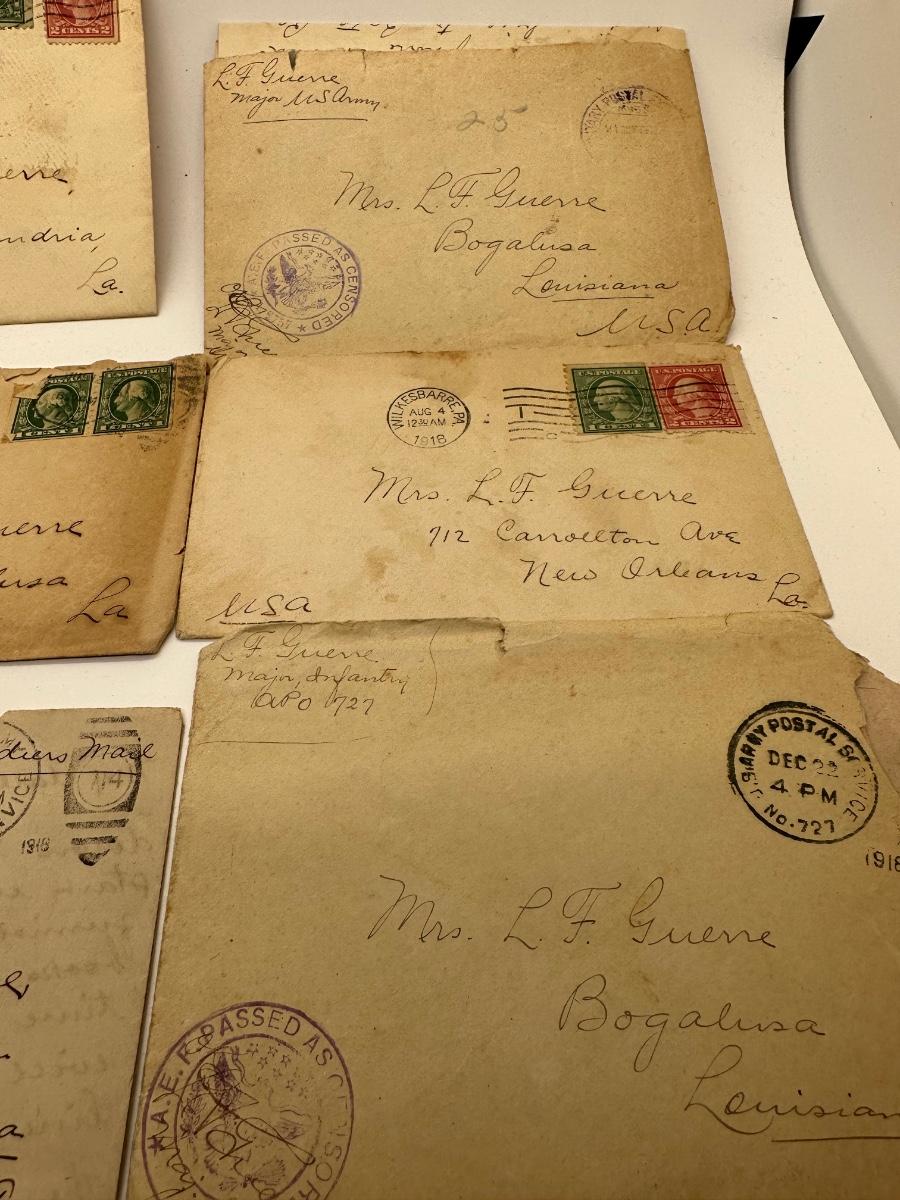 2 CENTS 2
erre,
ndria,
La.
L. F. Guerre
Major US Army
25
ARY POSTAL
Mrs. L. F. Guerre
Bogalusa
Louisiana
USA
A.E.F. PASSED AS CENSORED
U.S. POSTAGE
uerre
lusa
La
WILKESBARRE, PA.
AUG 4
12 30 AM
1918
U.S. POSTAGE
U.S. POSTAGE
2 CENTS 2
Mrs. L. F. Guerre
712 Carrollton Ave
New Orleans La.
USA
L. F. Guerre
Major, Infantry
APO 727
U.S. ARMY POSTAL SERVICE
DEC 22
4 PM
No. 727
1918
Mrs. L. F. Guerre
Bogalusa
Louisian
A.E.F. PASSED AS CENSOR
diers Mail
VICE
1918